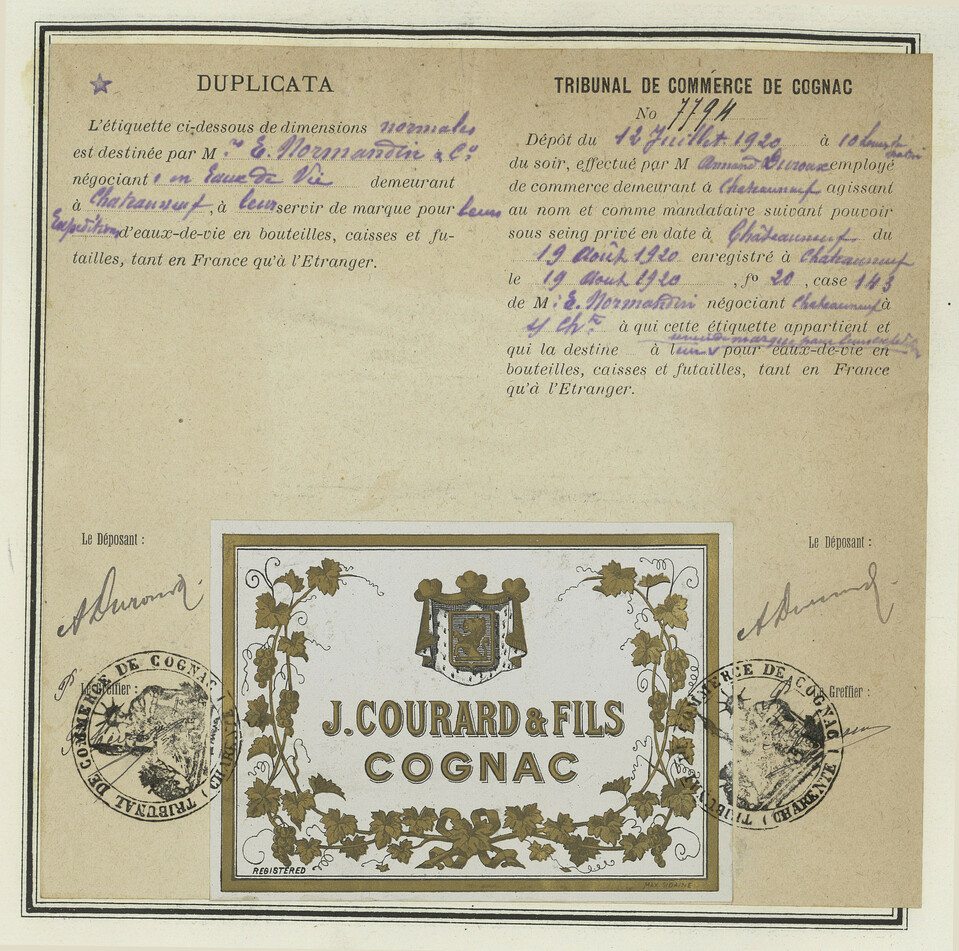 DUPLICATA
L'étiquette ci-dessous de dimensions normales
est destinée par M.rs E. Normandin & Co
négociants en Eaux de Vie demeurant
à Chateauneuf, à leur servir de marque pour leurs
Expéditions d'eaux-de-vie en bouteilles, caisses et fu-
tailles, tant en France qu'à l'Etranger.
TRIBUNAL DE COMMERCE DE COGNAC
No 7794
Dépôt du 12 Juillet 1920 à 10 heures du matin
du soir, effectué par M Armand employé
de commerce demeurant à Chateauneuf agissant
au nom et comme mandataire suivant pouvoir
sous seing privé en date à Châteauneuf du
19 Août 1920 enregistré à Chateauneuf
le 19 Aout 1920, fo 20, case 143
de M. E. Normandin négociant Chateauneuf à
s/ Chte à qui cette étiquette appartient et
qui la destine à leur pour eaux-de-vie en
bouteilles, caisses et futailles, tant en France
qu'à l'Etranger.
Le Déposant :
Le Déposant :
Le Greffier :
Le Greffier :
TRIBUNAL DE COMMERCE DE COGNAC (CHARENTE)
TRIBUNAL DE COMMERCE DE COGNAC (CHARENTE)
J. COURARD & FILS
COGNAC
REGISTERED